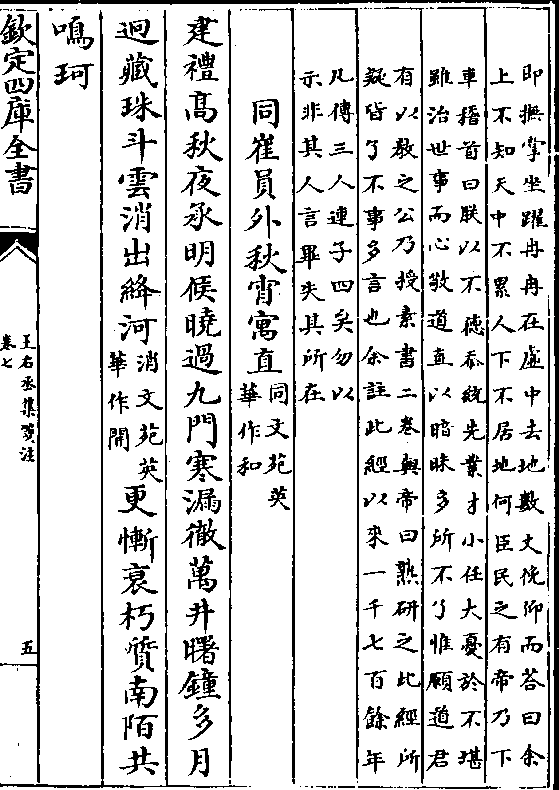 即撫掌坐躍冉冉在虛中去地數丈俛仰而荅曰余
上不知天中不累人下不居地何臣民之有帝乃下
車稽首曰朕以不德忝統先業才小任大憂於不堪
雖治世事而心敬道直以暗昧多所不了惟願道君
有以敎之公乃授素書二卷與帝曰熟研之此經所
疑皆了不事多言也余註此經以來一千七百餘年
凡傳三人連子四矣勿以
示非其人言畢失其所在
同崔員外秋宵寓直
同文苑英
華作和
建禮髙秋夜承明候曉過九門寒漏徹萬井曙鐘多月
迥藏珠斗雲消出絳河
消文苑英
華作開
更慚衰朽質南陌共
鳴珂
欽定四庫全書
王右丞集箋注
卷七
五